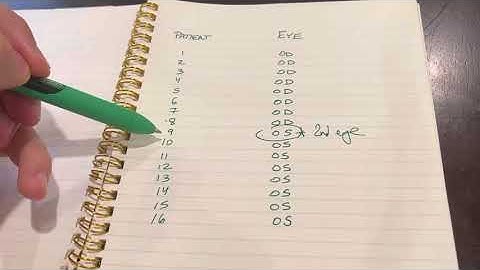 PATIENT EYE
1 OD
2 OD
3 OD
4 OD
5 OD
6 OD
7 OD
8 OD
9 (OS)* 2nd eye
10 OS
11 OS
12 OS
13 OS
14 OS
15 OS
16 OS